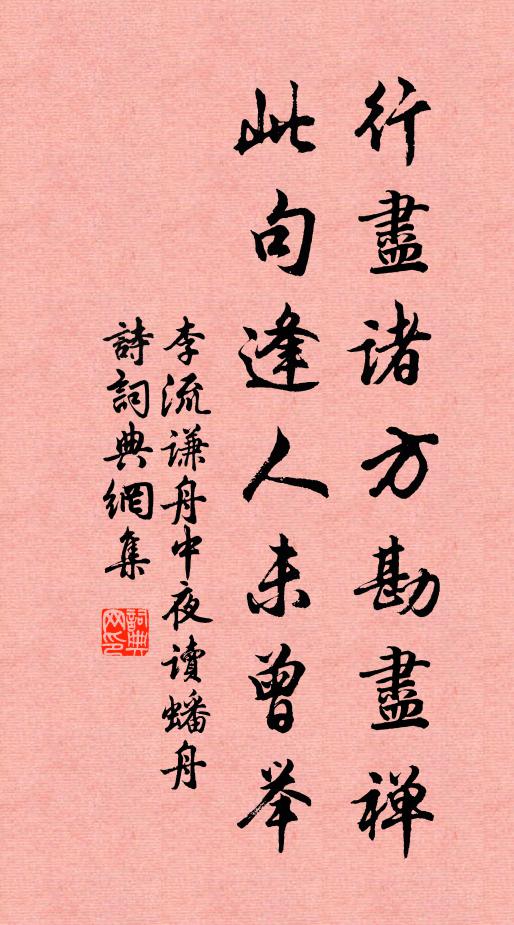 行盡诸方勘盡禅
此句逢人未曾举
李流谦舟中夜读蟠舟
詩詞典網集
詞典
网印